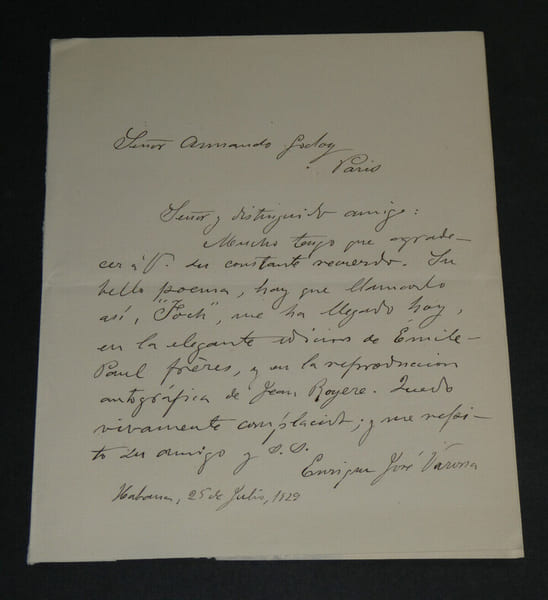 Señor Armando Godoy
Paris
Señor y distinguido amigo:
Mucho tengo que agrade-
cer á V. su constante recuerdo. Su
bello poema, hay que llamarlo
así, "Foch", me ha llegado hoy,
en la elegante edicion de Émile-
Paul frères, y en la reproduccion
autográfica de Jean Royere. Quedo
vivamente complacido; y me repi-
to su amigo y s.s.
Enrique José Varona
Habana, 25 de Julio, 1929